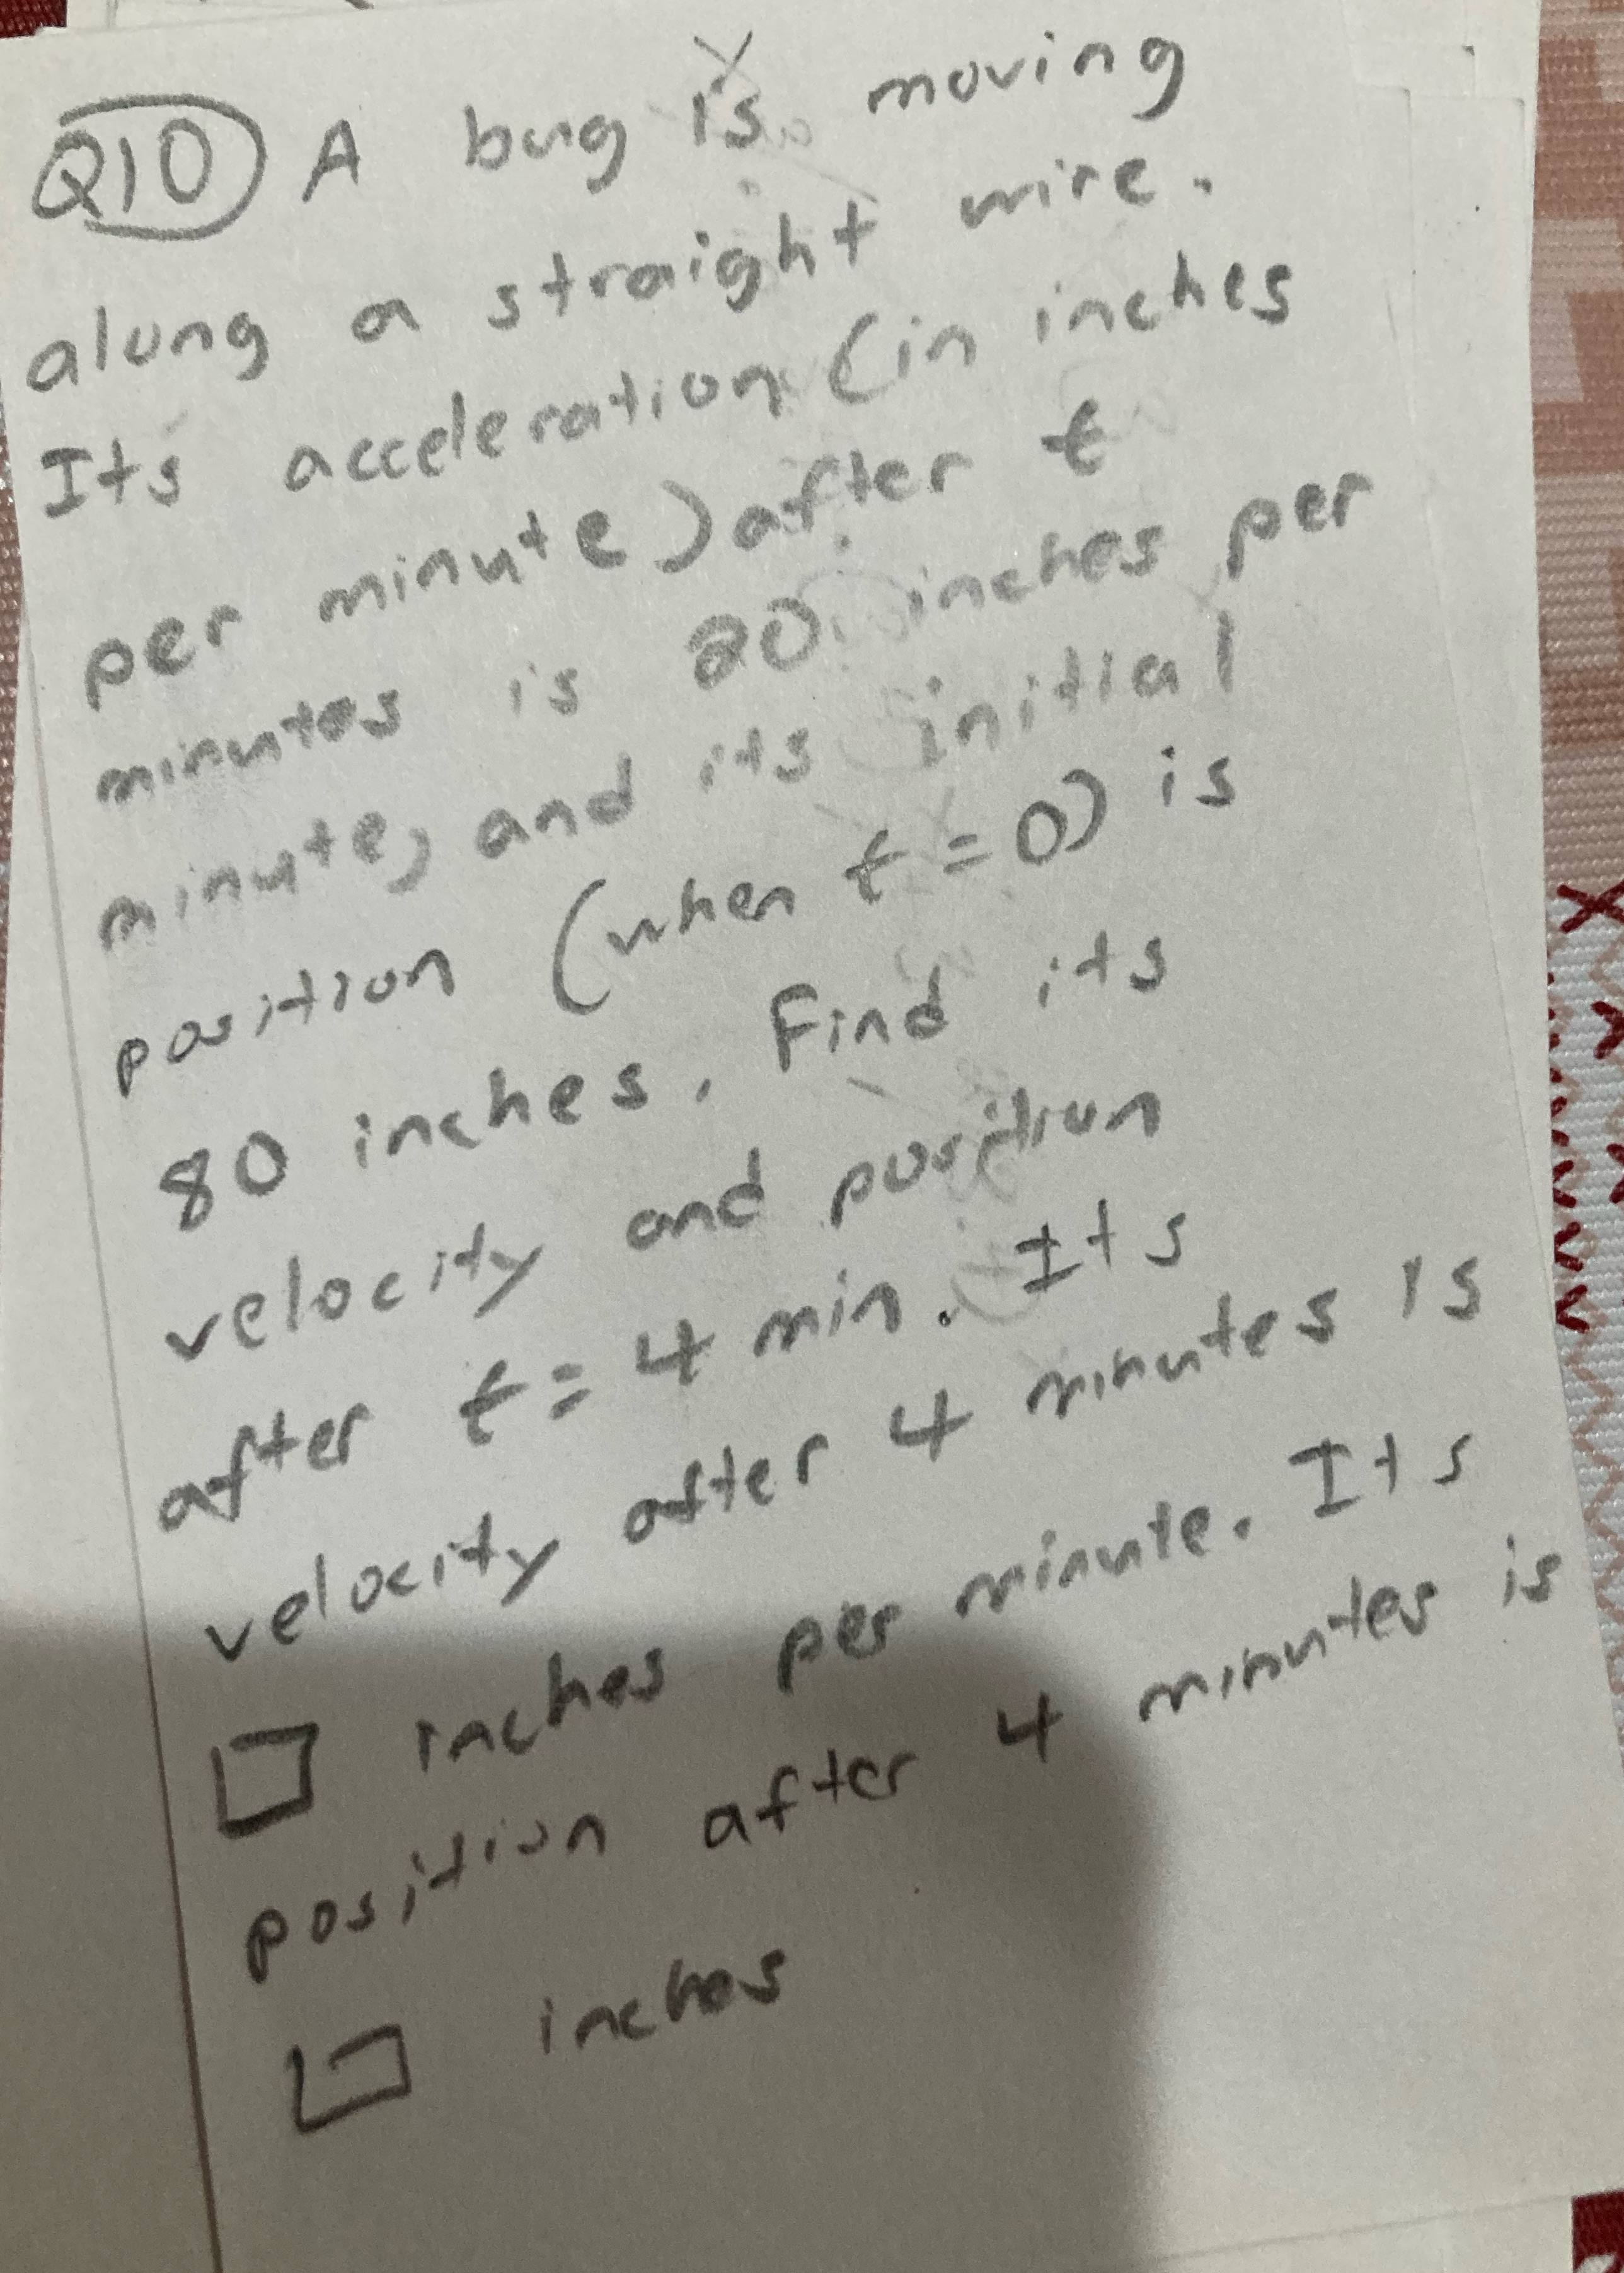 Q10 A bug is moving
along a straight wire.
Its acceleration (in inches
per minute) after t
minutes is 20 inches per
minute, and its initial
position (when t = 0) is
80 inches. Find its
velocity and position
after t = 4 min. Its
velocity after 4 minutes is
□ inches per minute. Its
position after 4 minutes is
□ inches